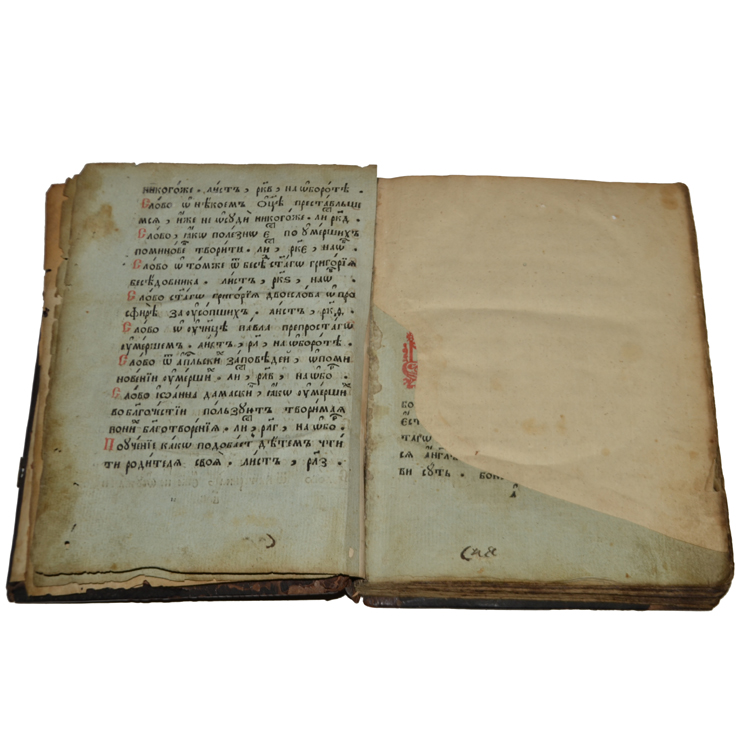 никого́же · ли́стъ , рк҃в , на ѡ҆боро́тѣ .
Сло́во ѡ҆ нѣ́коемъ ѻ҆ц҃ѣ преста́вльш
мсѧ , и҆́же не ѡ҆сꙋдѝ никого́же · ли рк҃д .
Сло́во , ꙗ҆́кѡ поле́зно є҆́ст по ᲂу҆ме́ршихъ
помино́вѣ твори́ти · ли , рк҃є , на ѡ҆б
Сло́во ѡ҆ то́мже ѿ бесѣ́ ст҃а́гѡ григо́рїѧ
бесѣ́довника · ли́стъ , рк҃ѕ , на ѡ҆б
Сло́во ст҃а́гѡ григо́рїѧ двоесло́ва ѡ҆ про
сфи́рѣ за ᲂу҆со́пшихъ · ли́стъ ,
Сло́во ѡ҆ ᲂу҆ч҃ницѣ па́вла препроста́гѡ
ᲂу҆ме́ршемъ · ли́стъ , рл҃а , на ѡ҆боро́тѣ .
Сло́во ѿ а҆пⷭ҇льски за́повѣдей , ѡ҆ поми
нове́нїи ᲂу҆ме́рши · ли , рл҃в , на ѡ҆бо .
Сло́во і҆ѡа́нна дамаски , ꙗ҆́кѡ ᲂу҆ме́рши
во бл҃гоче́стїи по́льзꙋютъ твори́маѧ
по ни бл҃готворе́нїѧ · ли , рл҃г , на ѡ҆бо .
Поꙋче́нїе ка́кѡ подоба́етъ дѣ́темъ чти́
ти роди́телѧ своѧ̀ · ли́стъ , рл҃з .
бо
є҆́ст
тагѡ
сѧ а҆́нг҃лъ
ви сꙋ́ть · бо